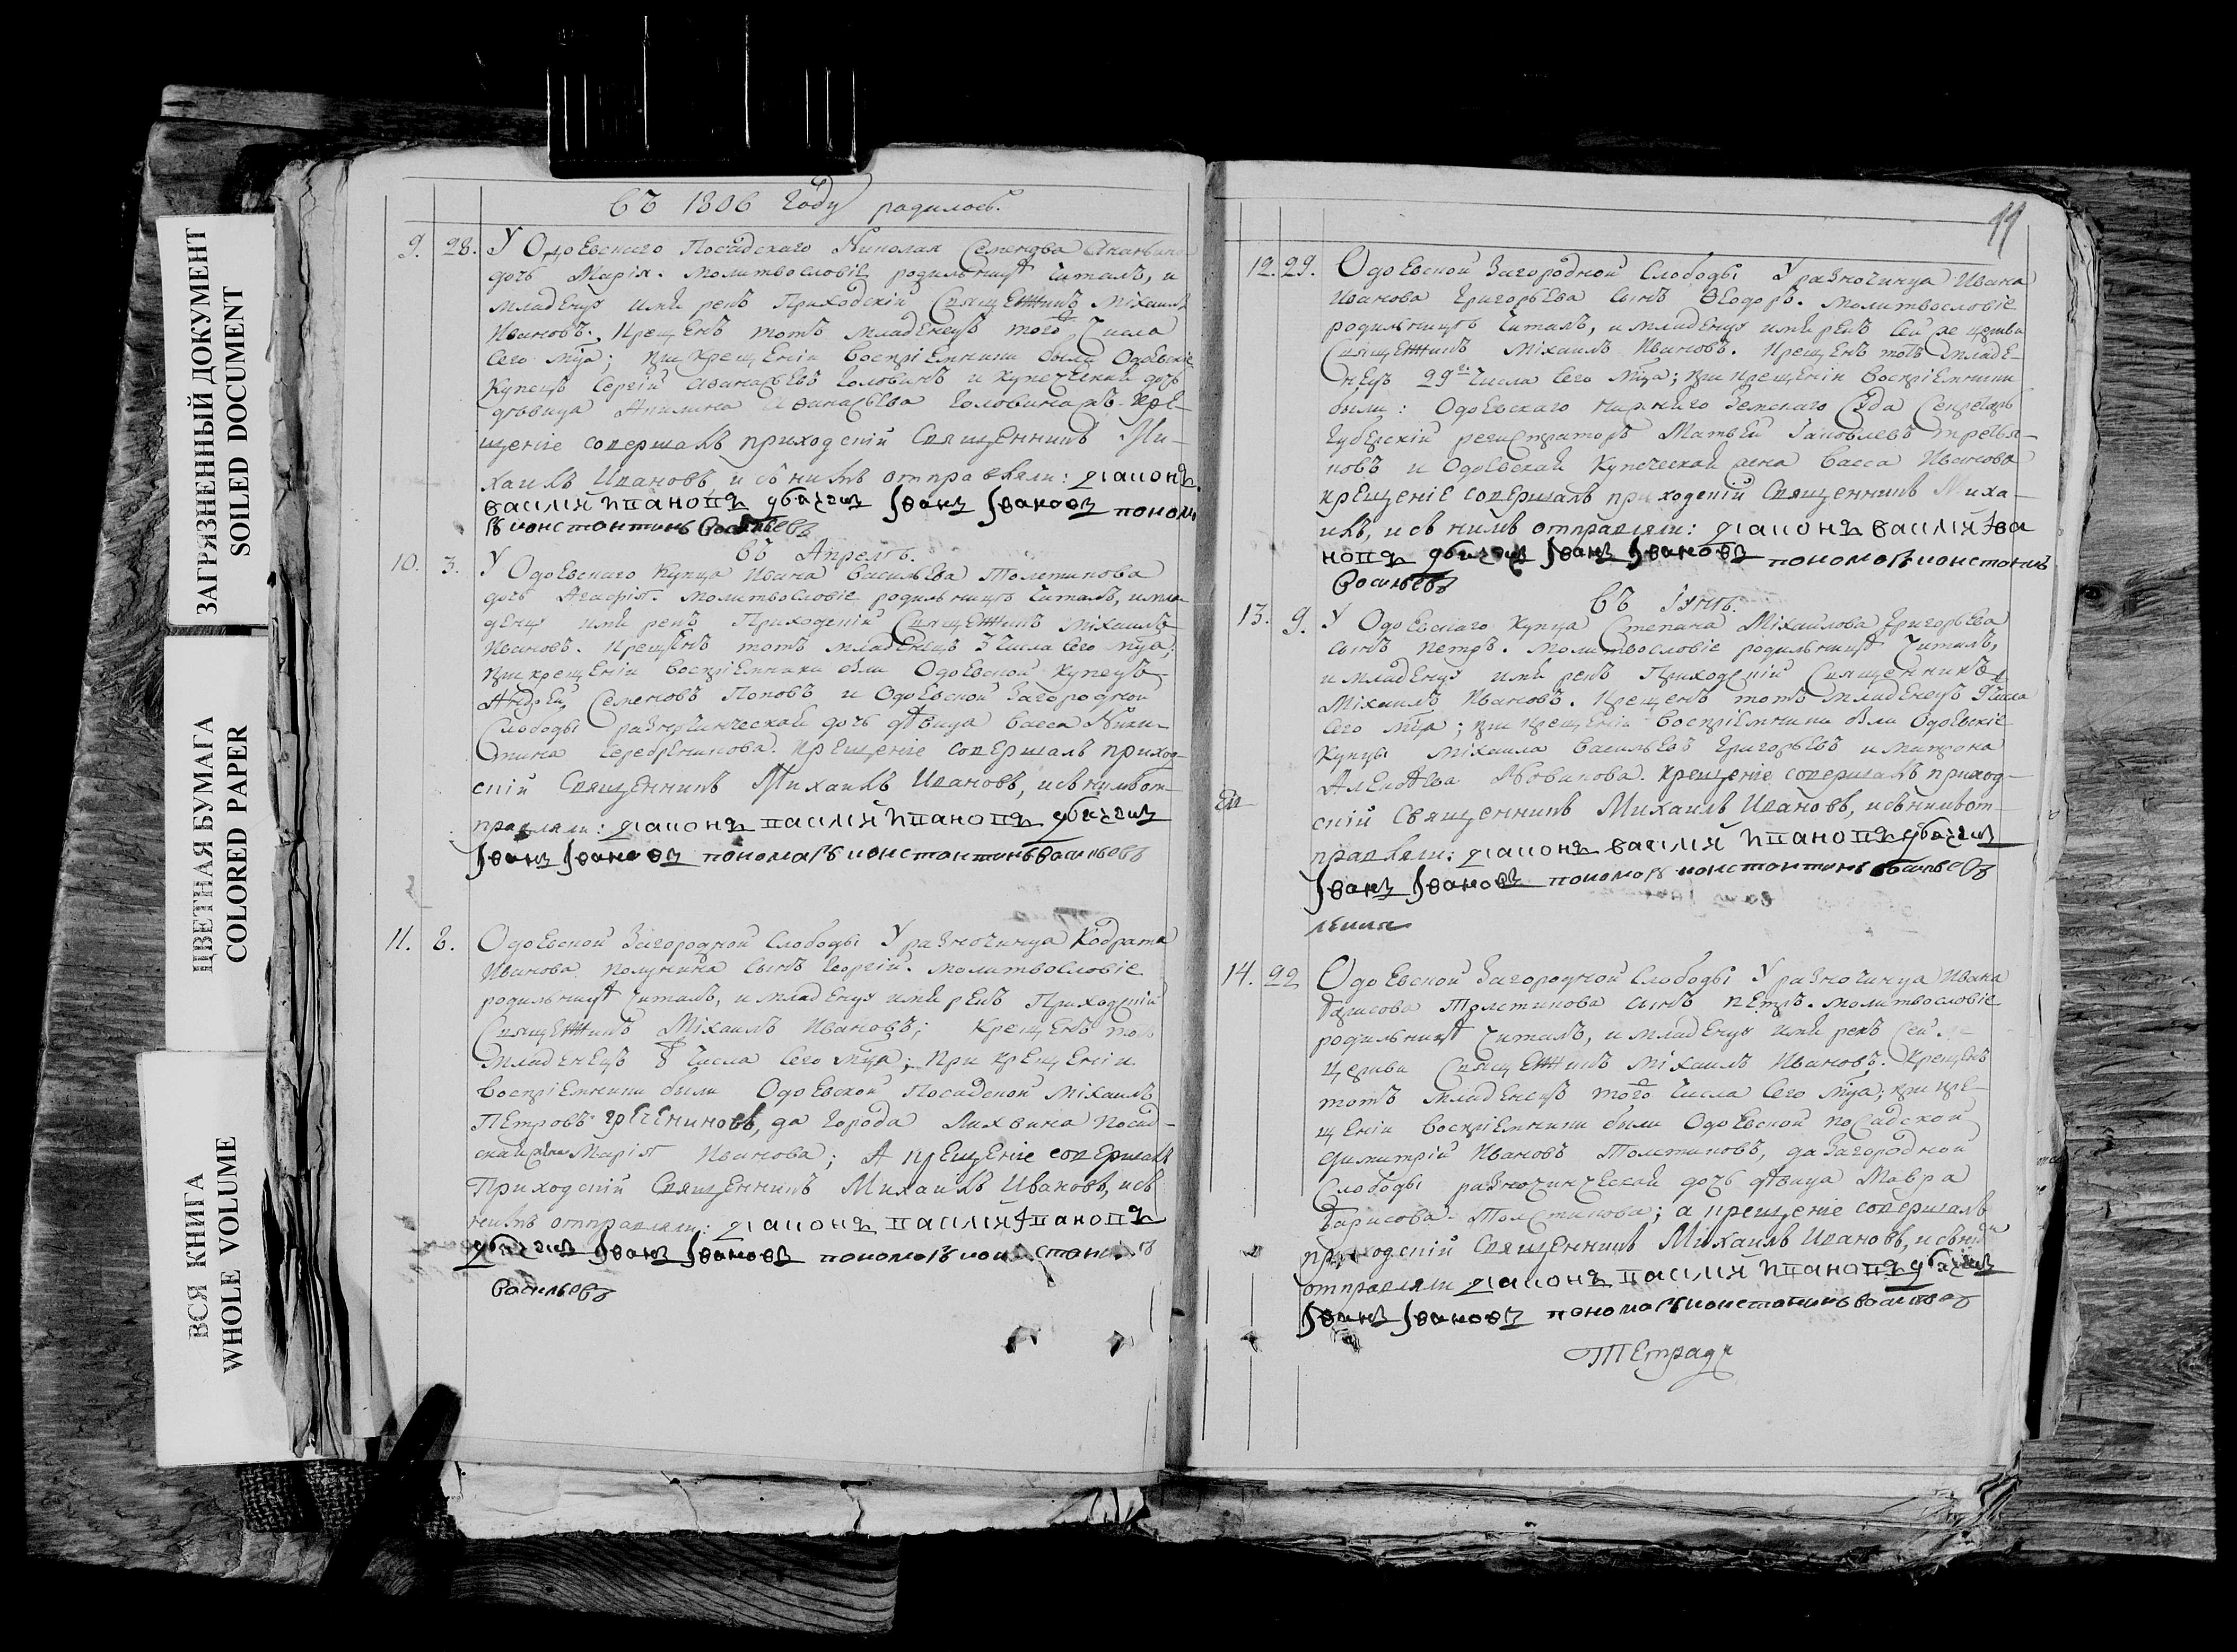 ЗАГРЯЗНЕННЫЙ ДОКУМЕНТ
SOILED DOCUMENT
ЦВЕТНАЯ БУМАГА
COLORED PAPER
ВСЯ КНИГА
WHOLE VOLUME
Въ 1806 Году родилось.
9. 28. У Одоевскаго Посадскаго Николая Семенова
дочь Марія. Молитвословіе родильницѣ читалъ, и
младенцу имя рекъ Приходскій Священникъ Міхаилъ
Ивановъ. Крещенъ тотъ младенецъ того Числа
сего мца; при крещеніи воспріемники были Одоевскіе
Купецъ Сергій Афанасьевъ Головинъ и купеческая дочь
дѣвица Акилина Афанасьева Головина а Кре-
щеніе совершалъ приходскій Священникъ Ми-
хаилъ Ивановъ, и съ нимъ отправляли: діаконъ
василій Ивановъ дьячекъ Іванъ Івановъ поном
рь константинъ васильевъ
Въ Апрелѣ.
10. 3. У Одоевскаго Купца Ивана Васильева Толстикова
дочь Агафія. Молитвословіе родильницѣ читалъ, и мла
денцу имя рекъ Приходскій Священникъ Міхаилъ
Ивановъ. Крещенъ тотъ младенецъ 3 числа сего мца;
при крещеніи воспріемники были Одоевской Купецъ
Андрей Семеновъ Поповъ и Одоевской Загородной
Слободы разночинческая дочь дѣвица Васса Ники-
тина Серебреникова. Крещеніе совершалъ приход-
скій Священникъ Михаилъ Ивановъ, и съ нимъ от-
правляли: діаконъ василій Ивановъ дьячекъ
Іванъ Івановъ пономарь константинъ васильевъ
11. 8. Одоевской Загородной Слободы У разночинца Кодрата
Иванова Полунина сынъ Георгій. Молитвословіе
родильницѣ читалъ, и младенцу имя рекъ Приходскій
Священникъ Міхаилъ Ивановъ; Крещенъ тотъ
младенецъ 8 числа сего мца; При крещеніи
воспріемники были Одоевской Посадской Міхаилъ
Петровъ да Города Лихвина Посад-
ская жена Марія Иванова; А крещеніе совершалъ
Приходскій Священникъ Михаилъ Ивановъ, и съ
нимъ отправляли: діаконъ василій Ивановъ
дьячекъ Іванъ Івановъ пономарь констан
васильевъ
99
12. 29. Одоевской Загородной Слободы У разночинца Ивана
Иванова Григорьева сынъ Ѳеодоръ. Молитвословіе
родильницѣ читалъ, и младенцу имя рекъ сей же церкви
Священникъ Міхаилъ Ивановъ. Крещенъ тотъ младе-
нецъ 29го числа сего мца; при крещеніи воспріемники
были: Одоевскаго нижняго Земскаго Суда Секретарь
Губернскій регистраторъ Матвей Іаковлевъ Третья-
ковъ и Одоевская Купеческая жена Васса Иванова
крещеніе совершалъ приходскій Священникъ Миха-
илъ, и съ нимъ отправляли: діаконъ василій Іва
новъ дьячекъ Іванъ Івановъ пономарь константинъ
Васильевъ
Въ Іунѣ.
13. 9. У Одоевскаго Купца Степана Міхайлова Григорьева
сынъ Петръ. Молитвословіе родильницѣ читалъ,
и младенцу имя рекъ Приходскій Священникъ
Міхаилъ Ивановъ. Крещенъ тотъ младенецъ 9 числа
сего мца; при крещеніи воспріемники были Одоевскіе
Купцы Міхаила Васильевъ Григорьевъ и Матрона
Алексѣева. Крещеніе совершалъ приход-
скій священникъ Михаилъ Ивановъ, и съ нимъ от-
правляли: діаконъ василій Ивановъ дьячекъ
Іванъ Івановъ пономарь константинъ васильевъ
14. 22 Одоевской Загородной Слободы У разночинца Ивана
Барисова Толстикова сынъ Петръ. Молитвословіе
родильницѣ читалъ, и младенцу имя рекъ сей же
церкви Священникъ Міхаилъ Ивановъ. Крещенъ
тотъ младенецъ того числа сего мца; при кре-
щеніи воспріемники были Одоевской посадской
Димитрій Ивановъ Толстиковъ, да Загородной
Слободы разночинческая дочь дѣвица Мавра
Барисова Толстикова; а крещеніе совершалъ
приходскій Священникъ Михаилъ Ивановъ, и съ ним
отправляли діаконъ василій Ивановъ дьячекъ
Іванъ Івановъ пономарь константинъ васильевъ
Тетрадь